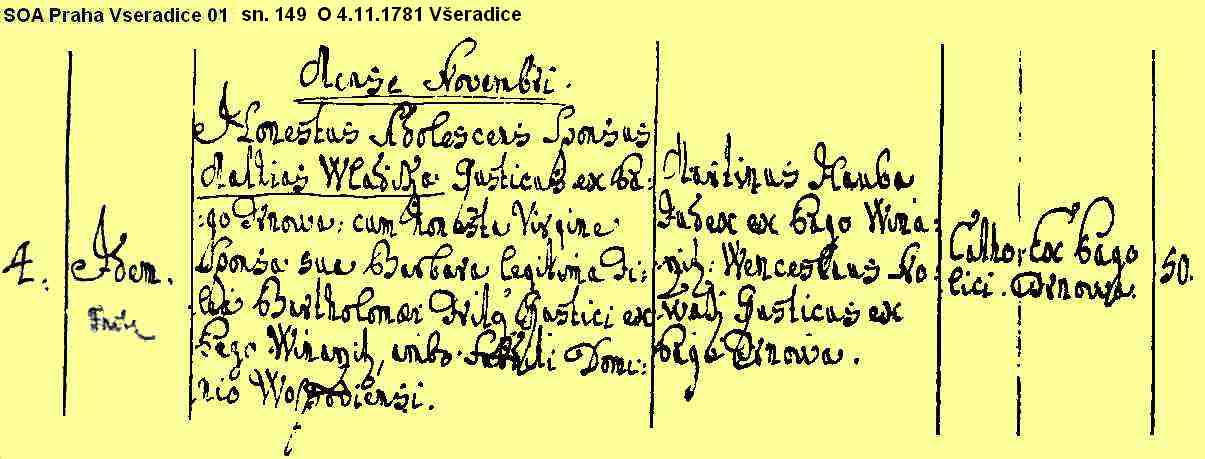 SOA Praha Vseradice 01 sn. 149 O 4.11.1781 Všeradice
Mense Novembri.
Honestus Adolescens Sponsus
Mathias Wladika Rusticus ex Pa-
-go Trnowa: cum honesta Virgine
Sponsa sua Barbara legitima Fi-
lia Bartholomæi Rustici ex
Pago Winarzitz, ambo Subditi Domi-
nio
Martinus Hauba
Judex ex Pago Wina-
Wenceslaus No-
waly Rusticus ex
Pago Trnowa.
4.
Idem.
Catho-
lici.
Ex Pago
Trnowa
50.